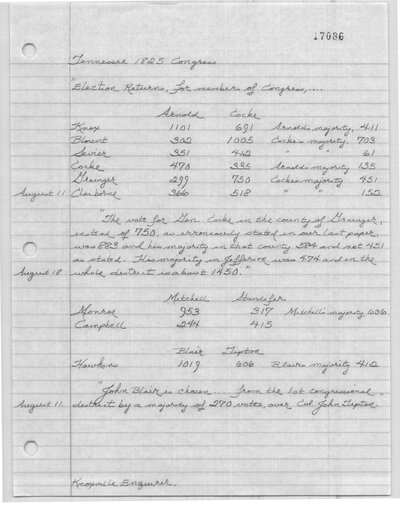 17036
Tennessee 1825 Congress
"Election Returns, for members of Congress,....
Arnold Cocke
Knox 1101 691 Arnold's majority, 411
Blount 302 1005 Cocke's majority, 703
Sevier 351 412 " " 61
Cocke 470 335 Arnold's majority 135
Grainger 299 750 Cocke's majority 451
August 11 Claiborne 366 518 " " 152
"The vote for Gen. Cocke in the county of Grainger,
instead of 750, as erroneously stated in our last paper,
was 883 and his majority in that county 584 and not 451
as stated. His majority in Jefferson was 474 and in the
August 18 whole district is about 1450."
Mitchell Standifer
Monroe 953 317 Mitchell's majority 636
Campbell 244 415
Blair Tipton
Hawkins 1019 606 Blair's majority 412
"John Blair is chosen .... from the 1st congressional
August 11 district by a majority of 270 votes, over Col. John Tipton."
Knoxville Enquirer.